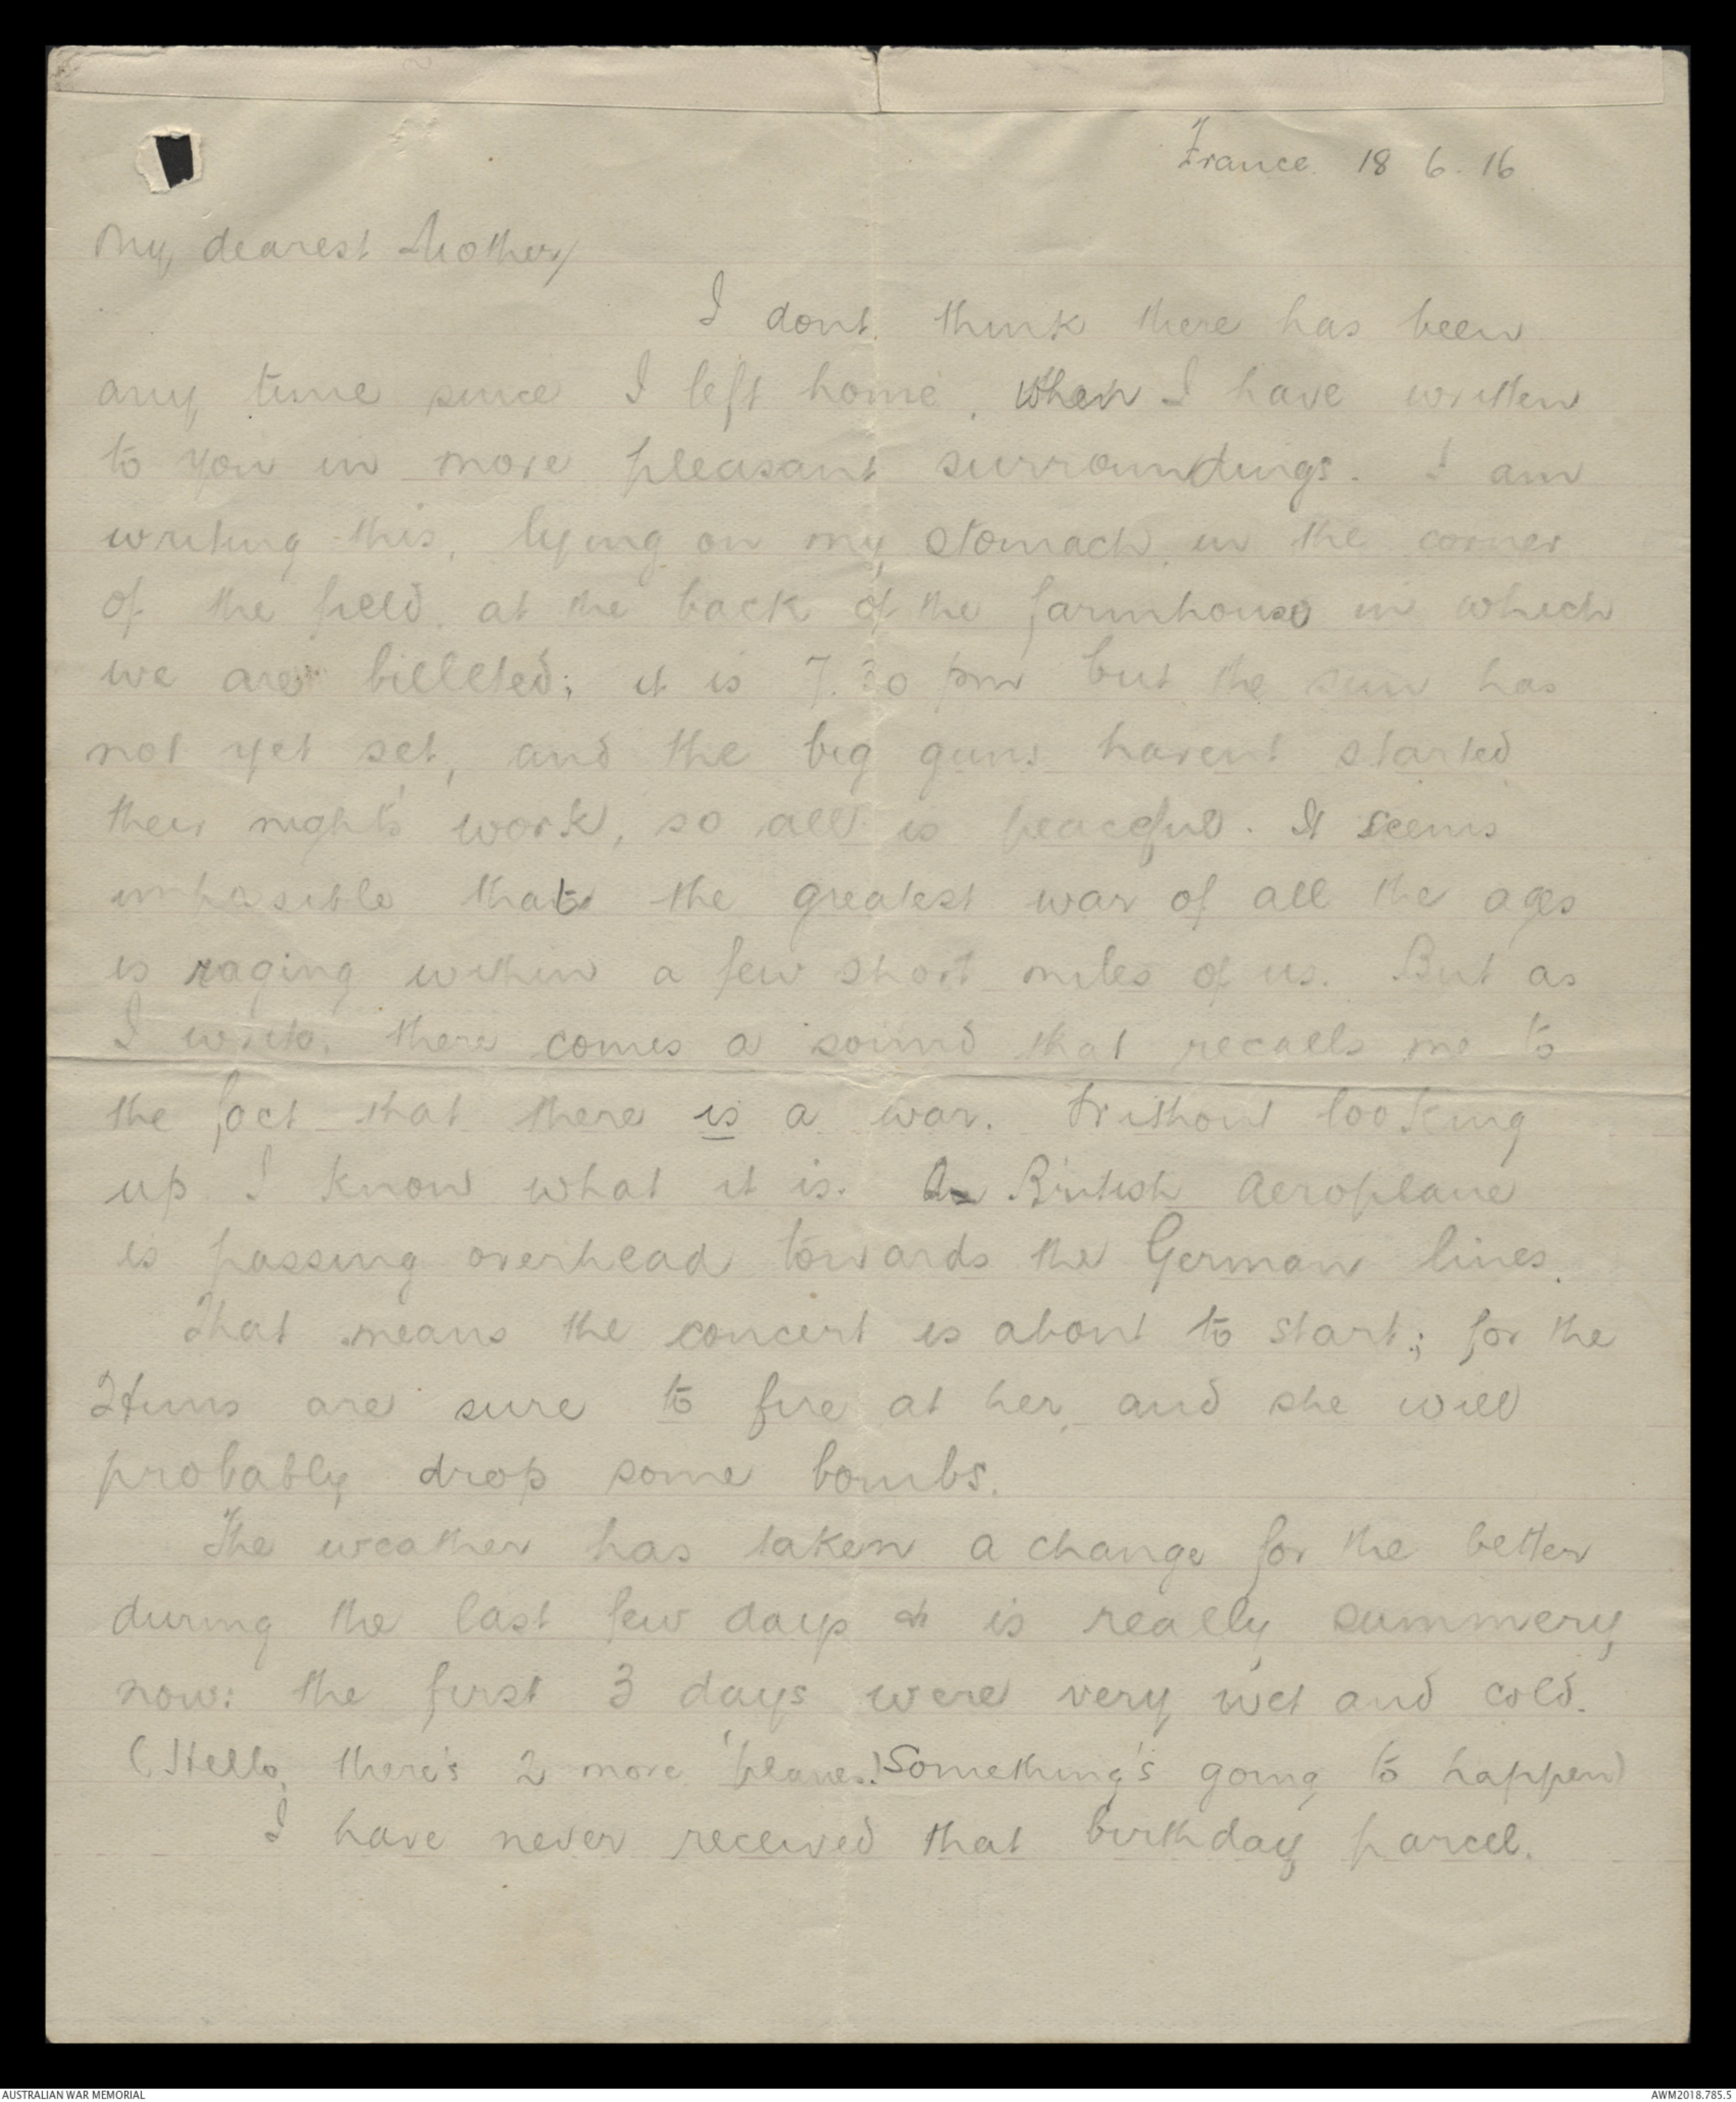 France. 18 6. 16
My dearest Mother/
I dont think there has been
any time since I left home, when I have written
to you in more pleasant surroundings. I am
writing this, lying on my stomach in the corner
of the field, at the back of the farmhouse in which
we are billeted; it is 7.30 pm but the sun has
not yet set, and the big guns havent started
their night's work, so all is peaceful. It seems
impossible that the greatest war of all the ages
is raging within a few short miles of us. But as
I write, there comes a sound that recalls me to
the fact that there is a war. Without looking
up I know what it is. A British Aeroplane
is passing overhead towards the German lines.
That means the concert is about to start; for the
Huns are sure to fire at her, and she will
probably drop some bombs.
The weather has taken a change for the better
during the last few days it is really summery
now: the first 3 days were very wet and cold.
(Hello, there's 2 more 'planes! Something's going to happen)
I have never received that birthday parcel.
AUSTRALIAN WAR MEMORIAL
AWM2018.785.5